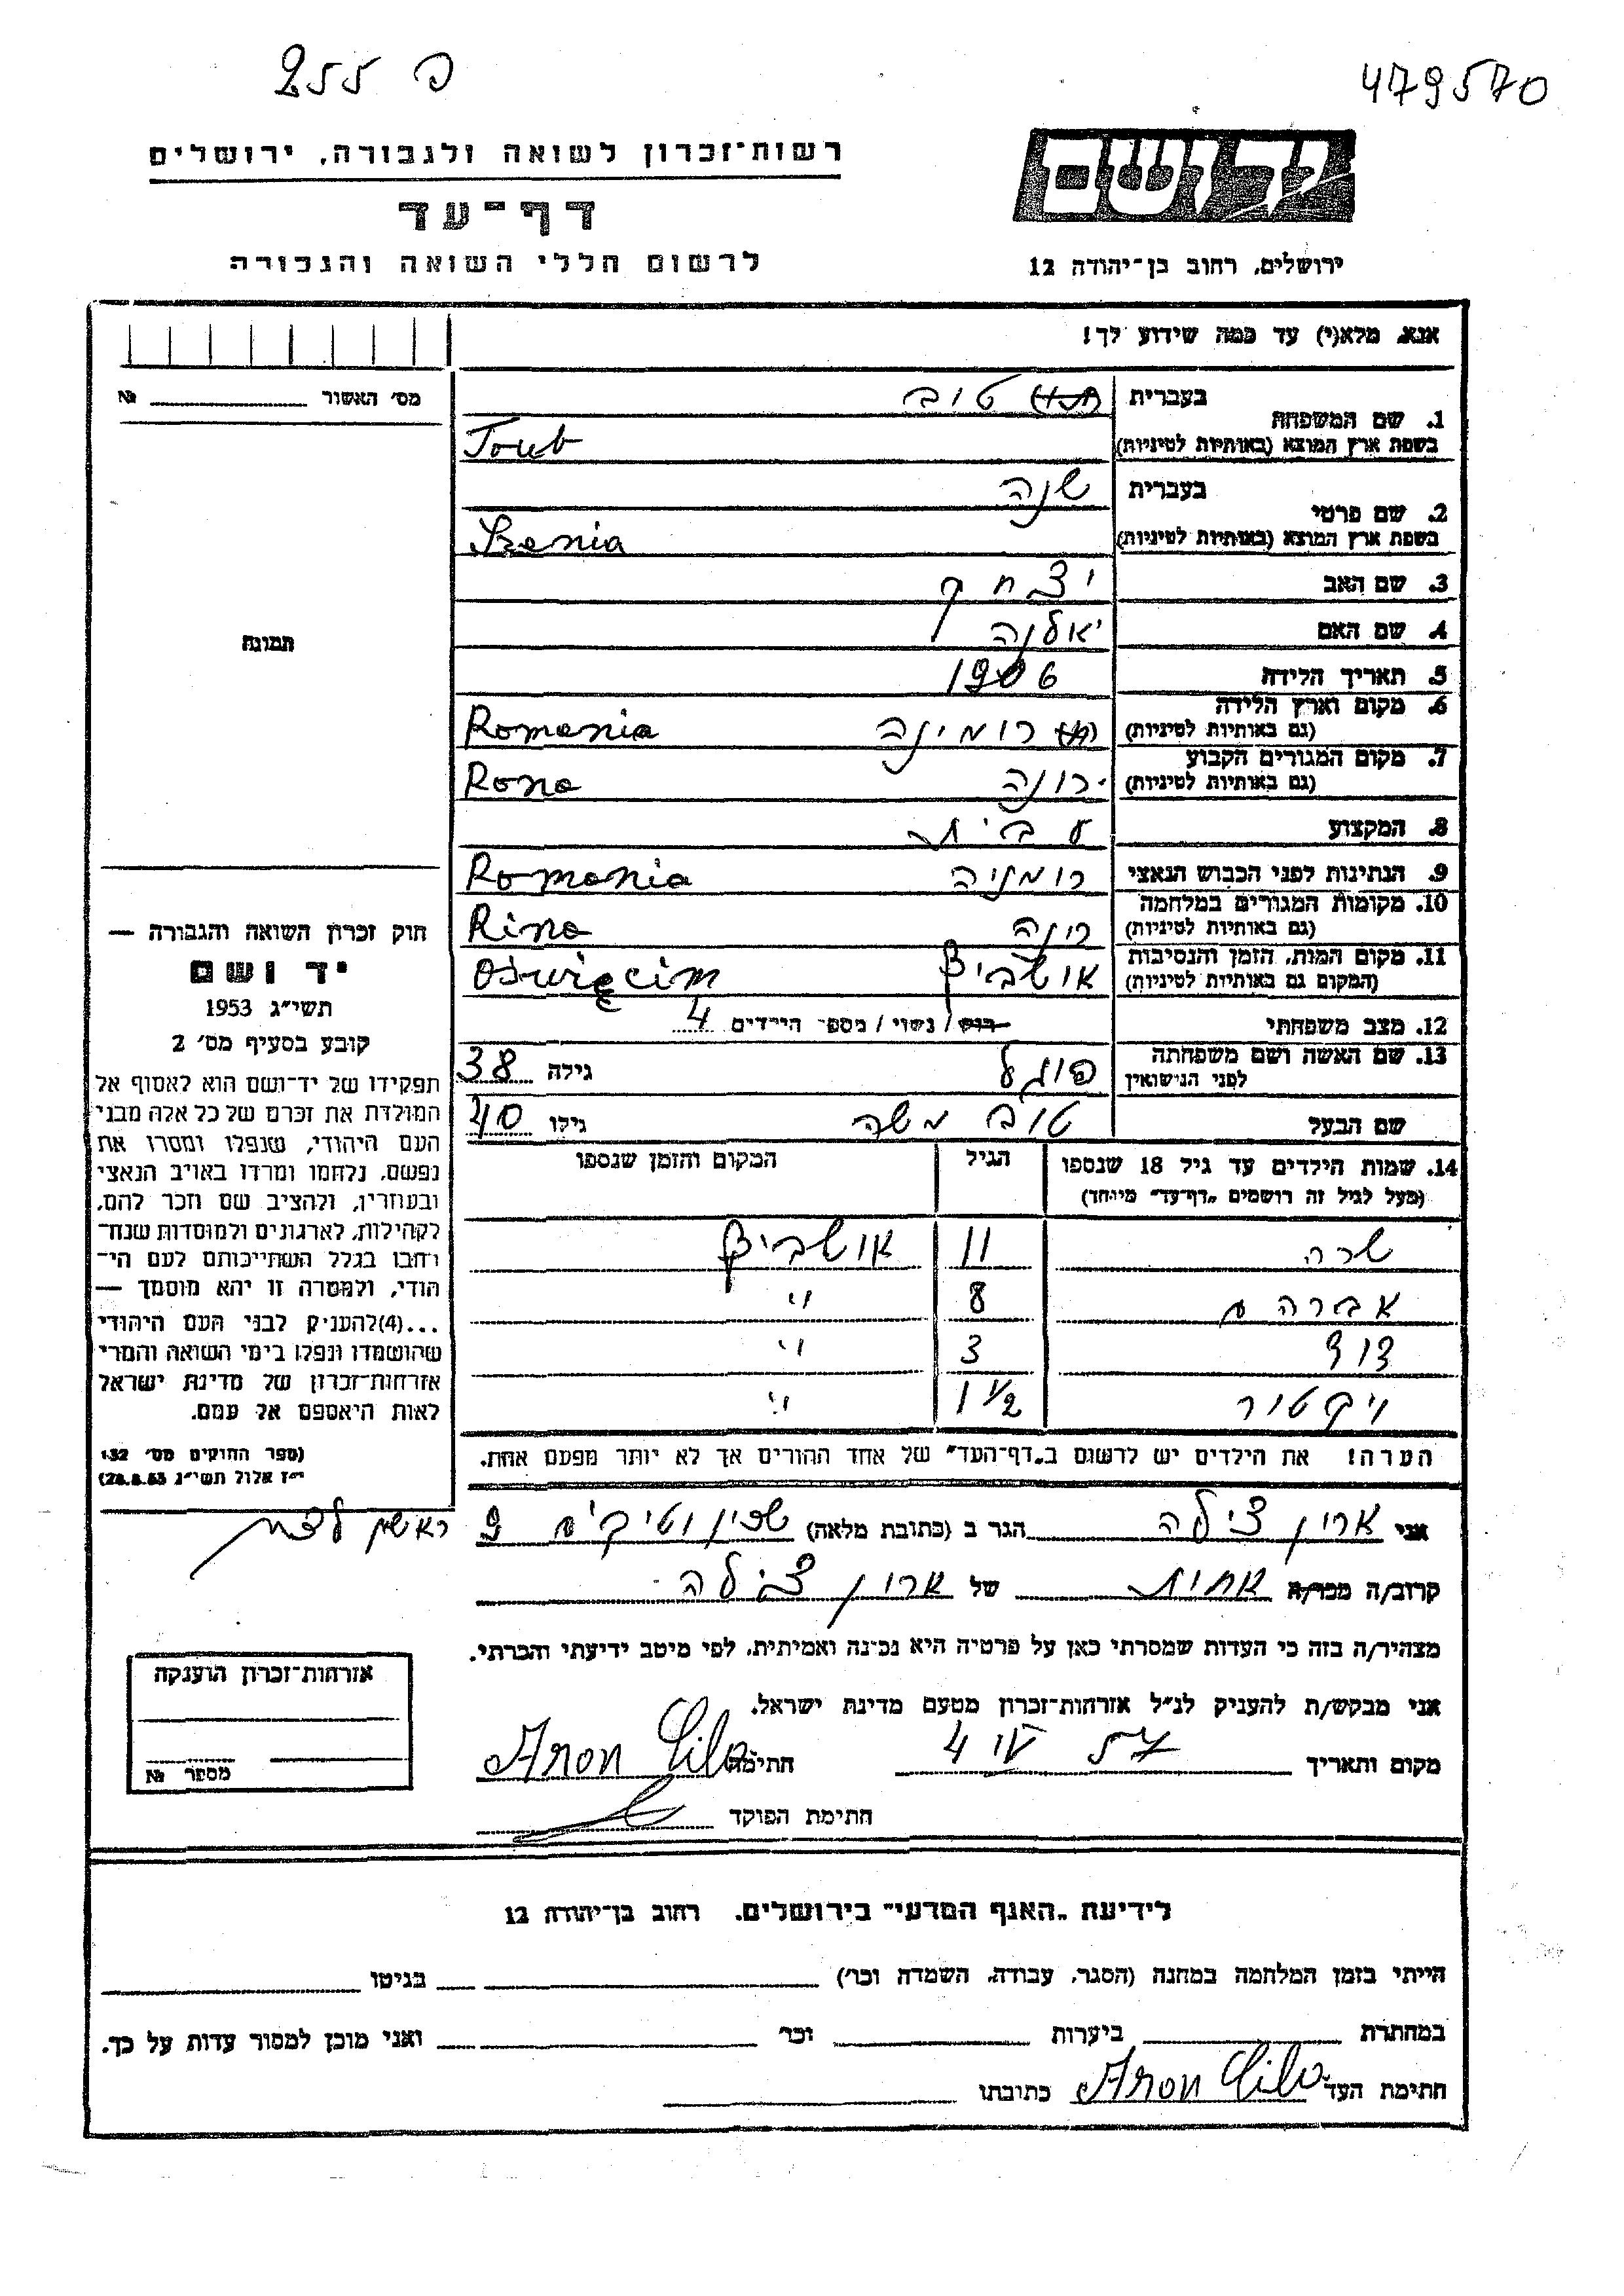 255 פ
479570
רשות־זכרון לשואה ולגבורה, ירושלים
ידושם
דף־עד
לרשום חללי השואה והגבורה
ירושלים, רחוב בן־יהודה 12
אנא, מלא(י) עד כמה שידוע לך!
מס׳ האשור № 
1. שם המשפחה
בעברית טוב
בשפת ארץ המוצא (באותיות לטיניות) Toub
2. שם פרטי
בעברית שנה
בשפת ארץ המוצא (באותיות לטיניות) Szenia
3. שם האב יצחק
4. שם האם יאלנה
5. תאריך הלידה 1906
6. מקום וארץ הלידה
(גם באותיות לטיניות) רומינה Romania
7. מקום המגורים הקבוע
(גם באותיות לטיניות) רונה Rona
8. המקצוע ע בית
9. הנתינות לפני הכבוש הנאצי רומניה Romania
10. מקומות המגורים במלחמה
(גם באותיות לטיניות) רינה Rina
11. מקום המות, הזמן והנסיבות
(המקום גם באותיות לטיניות) אושביץ Oświęcim
12. מצב משפחתי רווק/ נשוי/ מספר הילדים 4
13. שם האשה ושם משפחתה
לפני הנישואין פוגל גילה 38
שם הבעל טוב משה גילו 40
14. שמות הילדים עד גיל 18 שנספו הגיל המקום והזמן שנספו
(מעל לגיל זה רושמים „דף־עד״ מיוחד)
שרה 11 אושביץ
אברהם 8 "
דוד 3 "
ויקטור 1 1/2 "
הערה! את הילדים יש לרשום ב„דף־העד״ של אחד ההורים אך לא יותר מפעם אחת.
תמונה
חוק זכרון השואה והגבורה —
יד ושם
תשי״ג 1953
קובע בסעיף מס׳ 2
תפקידו של יד־ושם הוא לאסוף אל
המולדת את זכרם של כל אלה מבני
העם היהודי, שנפלו ומסרו את
נפשם, נלחמו ומרדו באויב הנאצי
ובעוזריו, ולהציב שם וזכר להם,
לקהילות, לארגונים ולמוסדות שנח־
רחבו בגלל השתייכותם לעם הי־
הודי, ולמטרה זו יהא מוסמך —
...(4)להעניק לבני העם היהודי
שהושמדו ונפלו בימי השואה והמרי
אזרחות־זכרון של מדינת ישראל
לאות היאספם אל עמם.
(ספר החוקים מס׳ 132
י״ז אלול תשי״ג 28.8.53)
אני ארון צילה הגר ב (כתובת מלאה) שכון וטיקים 9 ראשון לציון
קרוב/ה מכר/ה אחות של ארון צילה
מצהיר/ה בזה כי העדות שמסרתי כאן על פרטיה היא נכונה ואמיתית, לפי מיטב ידיעתי והכרתי.
אני מבקש/ת להעניק לנ״ל אזרחות־זכרון מטעם מדינת ישראל.
מקום ותאריך 4 IV 57 חתימה Aron Cila
חתימת הפוקד
אזרחות־זכרון הוענקה
מספר №
לידיעת „האגף המדעי״ בירושלים, רחוב בן־יהודה 12
הייתי בזמן המלחמה במחנה (הסגר, עבודה, השמדה וכו׳) בגיטו
במחתרת ביערות וכו׳ ואני מוכן למסור עדות על כך.
חתימת העד Aron Cila כתובתו